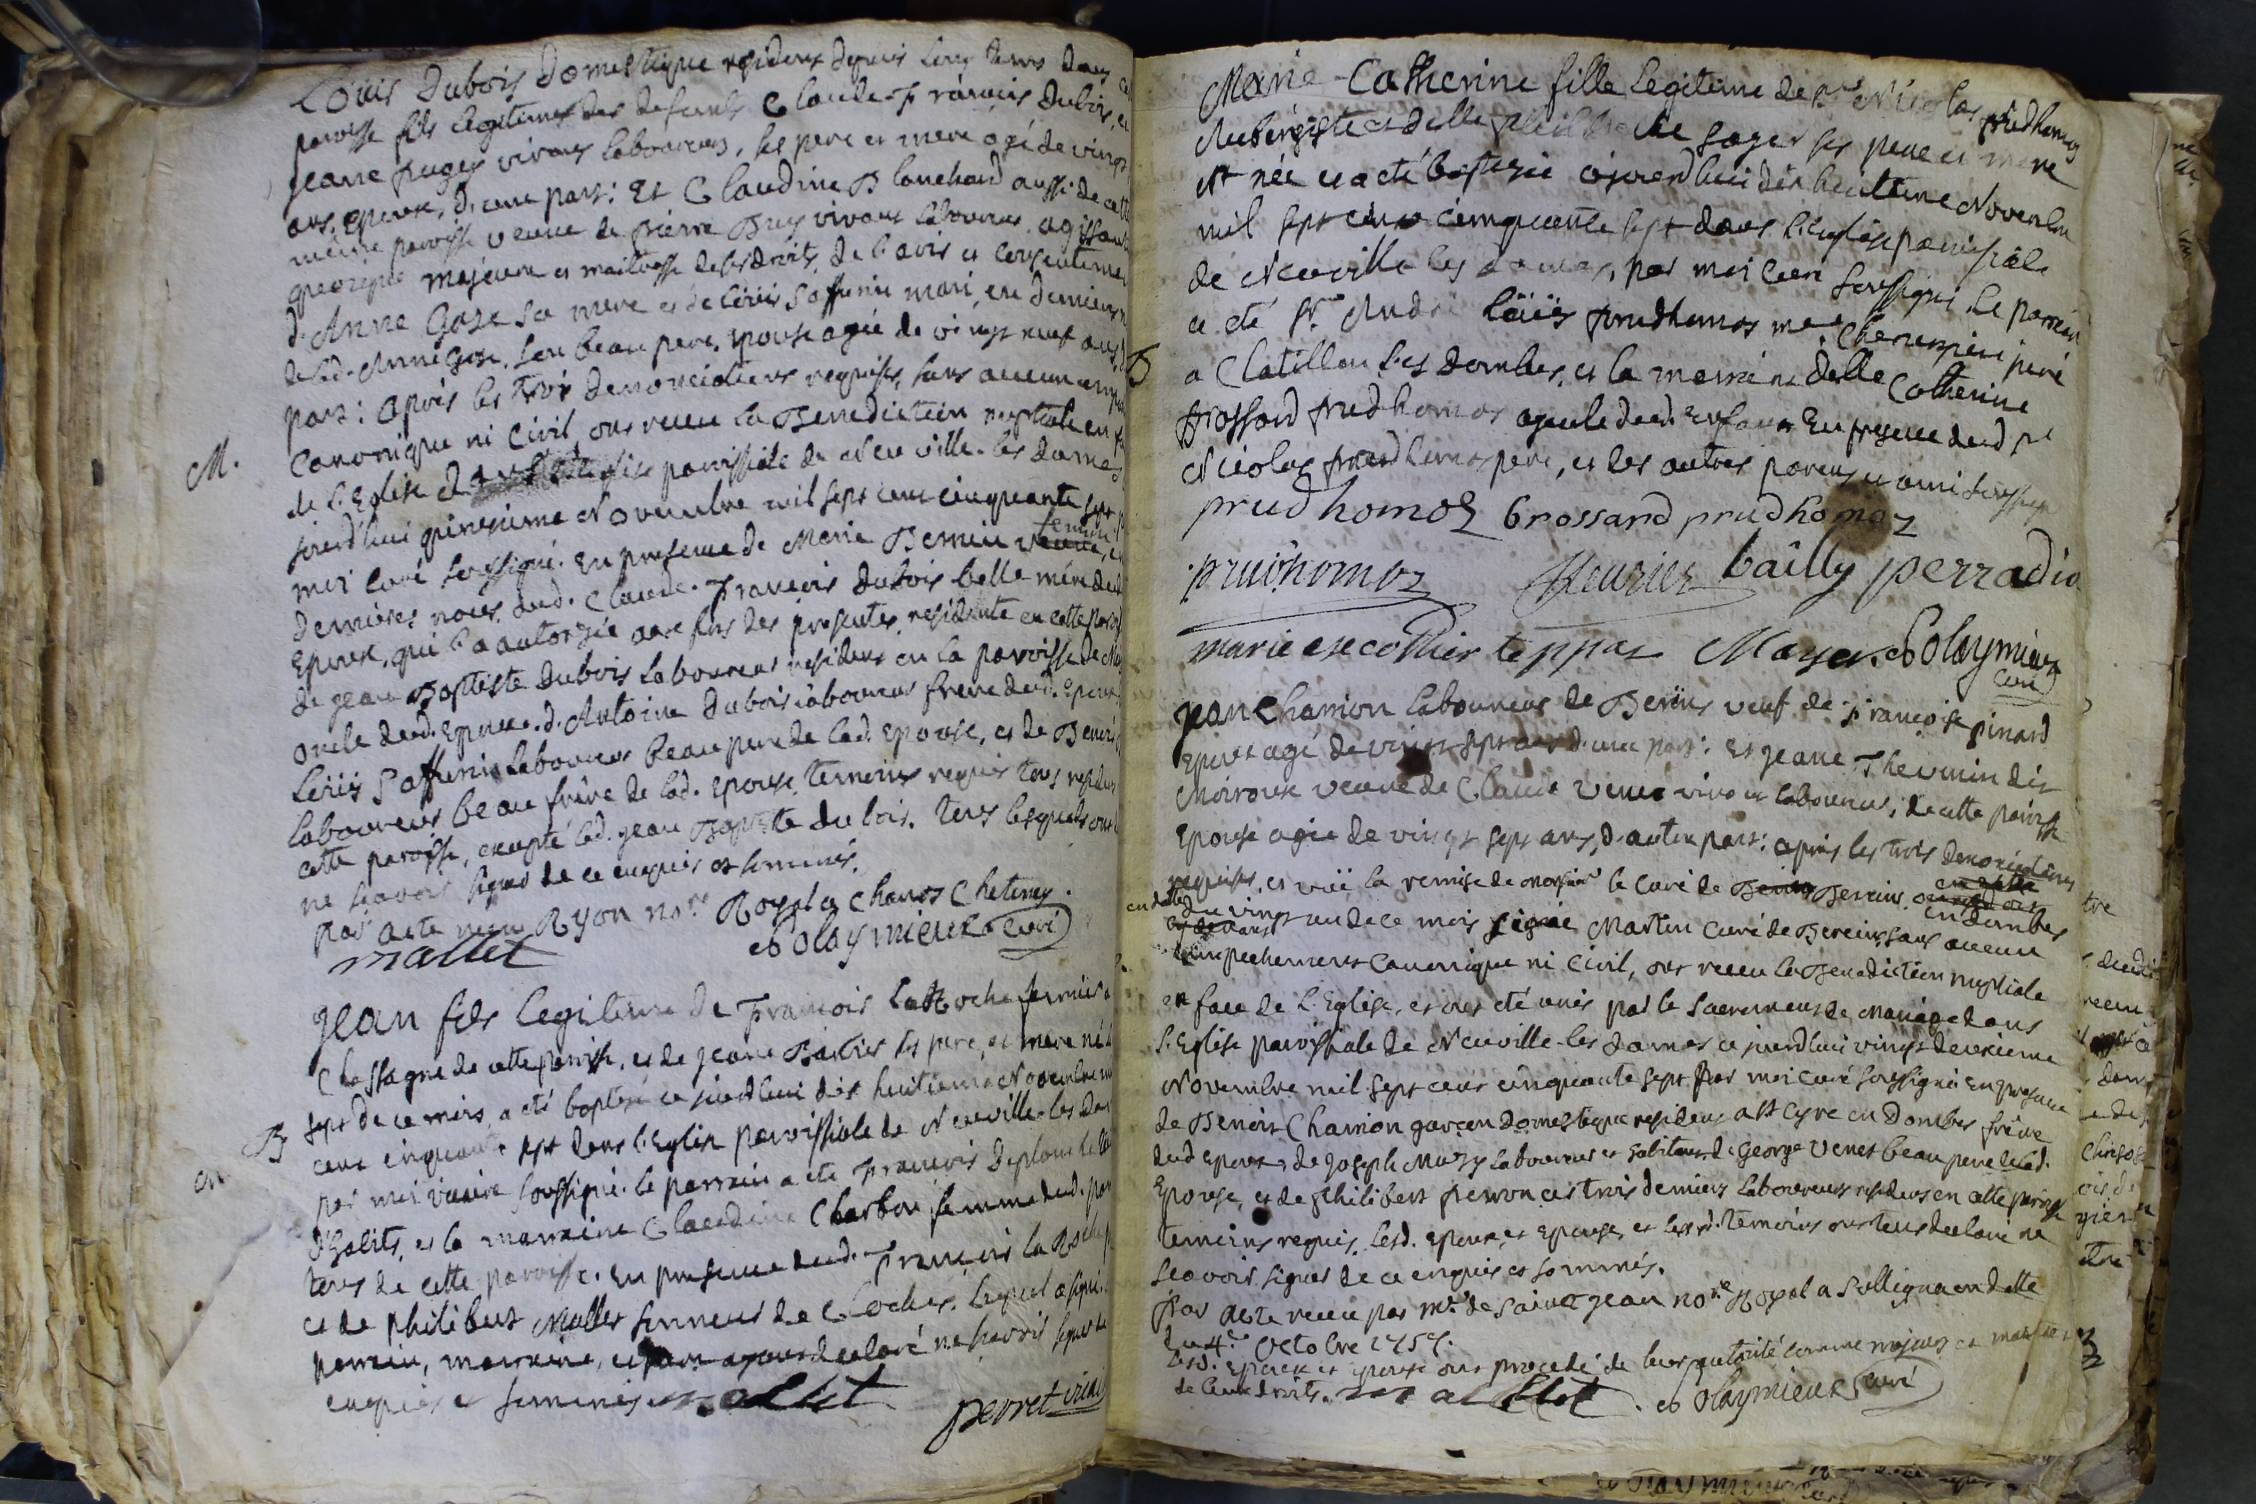 Louis Dubois Domestique residens depuis long tems dans
paroisse fils legitimes des defunts Claude-François Dubois, et
jeane puges vivans laboureurs, ses pere et mere agé de vingt
ans, epoux, d'une part: Et Claudine Blanchard aussi de cette
même paroisse veuve de pierre Buy vivant laboureur agissant
majeure et maitresse de ses droits, de l'avis et consenteme
d'Anne Goze sa mere et de Loüis Saffunin mari, en dernieres
de lad. Anne Goze, son beau pere, Epouse agée de vingt neuf ans,
part: après les trois denonciations requises, sans aucun emp
Canonique ni Civil, ont receu la Benediction nuptiale en
de l'Eglise paroissiale de Neuville-les dames
jourd'hui quinzieme Novembre mil sept cent cinquante sept
moi Curé soussigné. En presence de Marie Bernin temoin
dernieres noces dud. Claude-François dubois belle mére dud.
Epoux, qui l'a autorisée aux fins des presentes, residente en cette paroisse
de jean Baptiste Dubois laboureur residens en la paroisse de
oncle dud. Epoux. d'Antoine dubois laboureur frere dud. Epoux
Loüis Saffunin laboureur beau pere de lad. Epouse, et de Benoi
laboureur beau frère de lad. Epouse, temoins requis tous residens
cette paroisse, excepté led. jean Baptiste du bois. tous lesquels ont
ne scavoir signer de ce enquis et sommés.
par acte receu Ryon nore. Royal a Chanos Chatenay.
mallet Olaymieux Curé
M.
jean fils legitime de François La Roche fermier a
Chassagne de cette paroisse, et de jeane ses pere, et mere né le
sept de ce mois a eté baptisé ce jourd'hui dix huitieme Novembre m
cent cinquante sept dans l'Eglise paroissiale de Neuville-les Dam
par moi vicaire soussigné. le parrain a eté François
et la marraine Claudine Charbon femme dud. par
tous de cette paroisse. En presence dud. François la Roche p
et de philibert Mallet sonneur de Cloches, lequel a signé.
parrain, marraine, et pere ayant declaré ne scavoir signer de
enquis et sommés mallet
perret vicai
B
Marie-Catherine fille legitime de sr. Nicolas prudhomoz
Aubergiste et delle Sager ses pere et mere
est née et a eté baptisée ajourd'hui dix huitieme Novembre
mil sept cent cinquante sept dans l'Eglise paroissiale
de Neuville les dames, par moi Curé soussigné. Le parrain
a eté Sr. André Loüis prudhomoz me. Chirurgien juré
a Chatillon les Dombes, et la marraine delle Catherine
Brossard prudhomoz ayeule dud. Enfant En presence dud. sr
Nicolas prudhomoz pere, et des autres parens et ami soussig
prudhomoz brossard prudhomoz
prudhomoz fleurier bailly perradin
marie Mayer Olaymieux
Curé
B
jean Charrion laboureur de Bereins veuf de Françoise pinard
Epoux agé de vingt sept ans d'une part: Et jeane Thevenin dit
Moiroux veuve de Claude Venet vivant laboureur, de cette paroisse
Epouse agée de vingt sept ans, d'autre part: après les trois denonciations
requises, et vuë la remise de Monsieur le Curé de Bereins
en dombes
en datte du vingt un de ce mois signée Martin Curé de Bereins, sans aucun
empechement Canonique ni Civil, ont receu la Benediction nuptiale
en face de L'Eglise, et ont eté unis par le Sacrement de Mariage dans
l'Eglise paroissiale de Neuville-les dames ce jourd'hui vingt deuxieme
Novembre mil sept cent cinquante sept par moi Curé soussigné En presence
de Benoit Charrion garçon domestique residens a St Cyre en Dombes frére
dud Epoux, de Joseph Muzy laboureur et habitans, de George Venet beau pere de lad.
Epouse, et de Philibert perron ces trois derniers laboureurs residens en cette paroisse
temoins requis. Lesd. epoux, et Epouse, et lesd. temoins ont tous declaré ne
scavoir signer de ce enquis et sommés.
Par acte receu par Me. de Saint jean nore. Royal a Sulligna en datte
du 4e. Octobre 1757.
Lesd. Epoux et epouse ont procedé de leur autorité comme majeurs et maitres
de leurs droits. mallet Olaymieux Curé